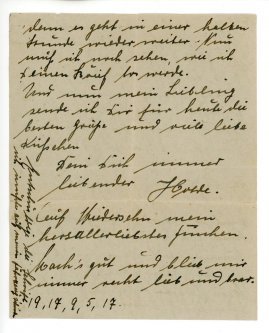 denn es geht in einer halben
Stunde wieder weiter. Nun
muß ich noch sehen, wie ich
Deinen Brief los werde.
Und nun mein Liebling
sende ich Dir für heute die
besten Grüße und viele liebe
Küsschen
Dein Dich immer
liebender
Auf Wiedersehn mein
herzallerliebstes
Mach's gut und bleib mir
immer recht lieb und brav.
19, 17, 9, 5, 17.